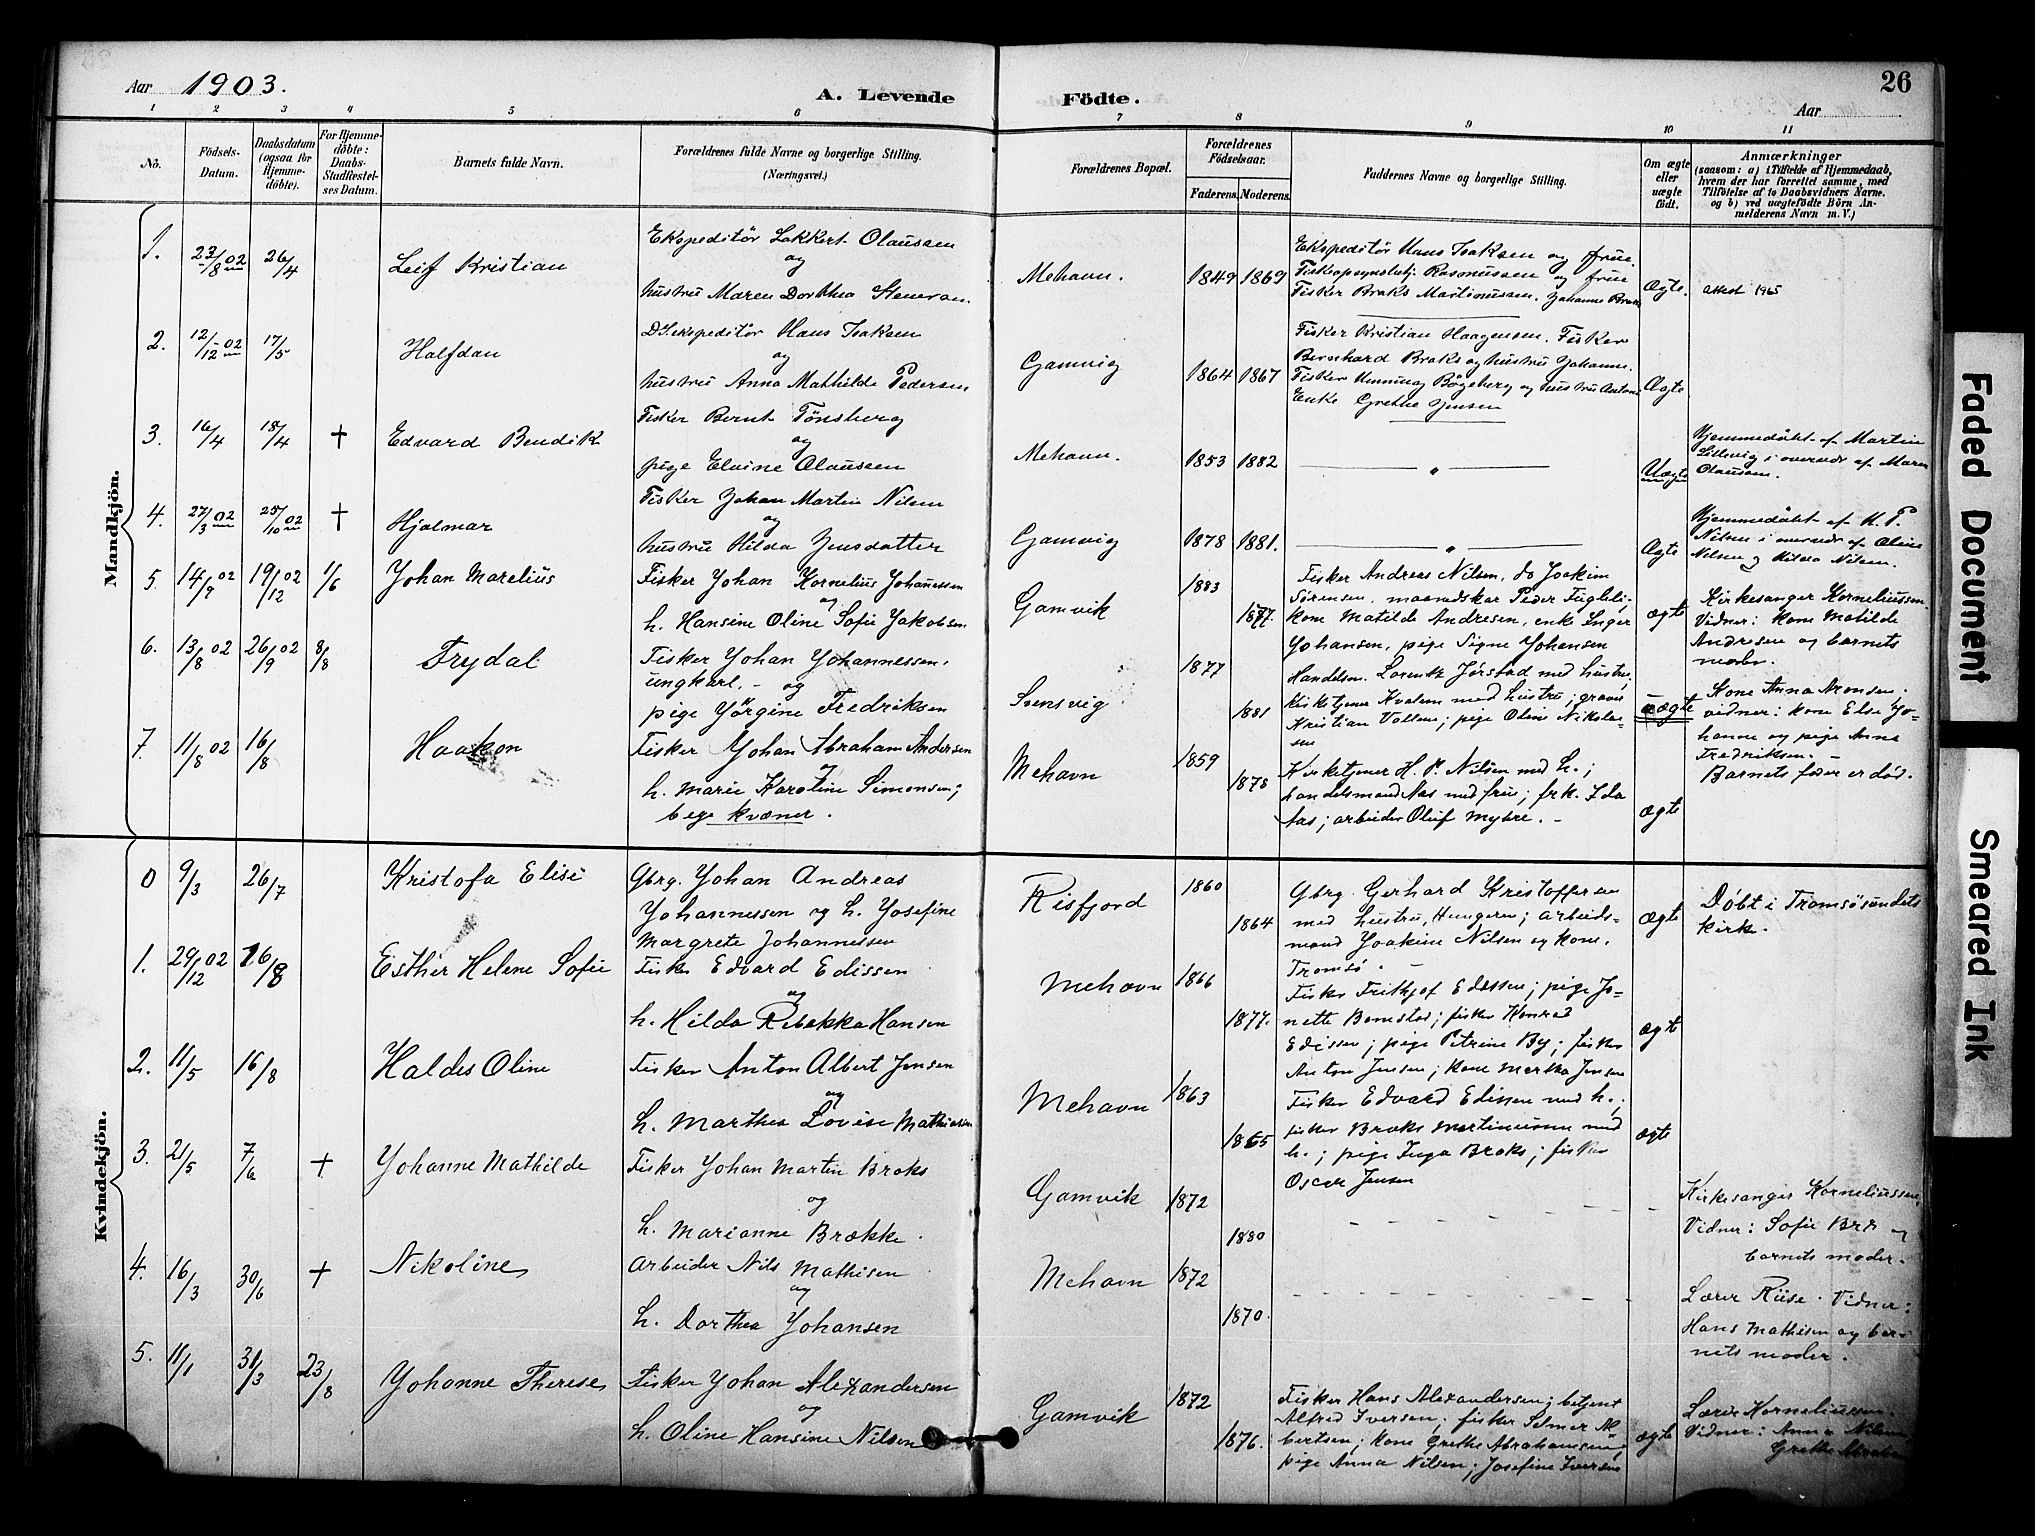 Aar 1903.
A. Levende Födte.
Aar
26
1 2 3 4 5 6 7 8 9 10 11
No.
Födsels-Datum.
Daabsdatum (ogsaa for Hjemme-döbte).
For Hjemme-döbte: Daabs-Stadfæstel-ses Datum.
Barnets fulde Navn.
Forældrenes fulde Navne og borgerlige Stilling.
(Næringsvei.)
Forældrenes Bopæl.
Forældrenes Födselsaar.
Faderens. Moderens.
Faddernes Navne og borgerlige Stilling.
Om ægte eller uægte födt.
Anmærkninger
(saasom: a) i Tilfælde af Hjemmedaab,
hvem der har forrettet samme, med
Tilföielse af to Daabsvidners Navne.
og b) ved uægtefödte Börn An-
melderens Navn m. V.)
Mandkjön.
1. 23/8 02 26/4 Leif Kristian
Ekspeditør Lakkert Olaussen
og
hustru Maren Dorthea Stensen
Mehavn. 1849 1869
Ekspeditør Hans Isaksen og frue.
Rasmussen og frue
Fisker Braks Martinussen. Johanne Braks
Ægte. attest 1965
2. 12/12 02 17/5 Halfdan
DS.ekspeditør Hans Isaksen
og
hustru Anna Mathilde Pedersen
Gamvig 1864 1867
Fisker Kristian Haagensen. Fisker
Bernhard Braks og hustru Johanne.
Fisker Henning Bøgeberg og hustru Antone
Enke Grethe Jensen
Ægte
3. 16/4 18/4 + Edvard Bendik
Fisker Bernt Tønsberg
og
pige Elvine Olaussen
Mehavn. 1853 1882
— " —
Uægte
Hjemmedøbt af Martin
Lillevig i overvær af Maren
Olaussen.
4. 27/3 02 25/10 02 + Hjalmar
Fisker Johan Martin Nilsen
og
hustru Hilda Jensdatter
Gamvig 1878 1881.
— " —
Ægte
Hjemmedøbt af H. P.
Nilsen i overvær af Oline
Nilsen og Hilda Nilsen.
5. 14/9 02 19/12 02 1/6 Johan Marelius
Fisker Johan Kornelius Johannessen
og
h. Hansine Oline Sofie Jakobsen
Gamvik 1883 1877.
Fisker Andreas Nilsen, do Joakim
Sørensen, maanedskar Peder Fugleli;
kone Matilde Andresen, enke Inger
Johansen, pige Signe Johansen
ægte
Kirkesanger Korneliussen.
Vidner: kone Matilde
Andresen og barnets
moder.
6. 13/8 02 26/9 02 8/8 Trydal
Fisker Johan Johannessen,
ungkarl. - og
pige Jörgine Fredriksen
Svensvig 1877 1881
Handelsm. Lorentz Jørstad med hustru,
kirketjener Kvalem med hustru; gravør
Kristian Vollen; pige Oline Nikola-
sen
uægte
Kone Anna Aronsen.
vidner: kone Else Jo-
hanne og pige Anna
Fredriksen. -
Barnets fader er død.
7. 11/8 02 16/8 Haakon
Fisker Johan Abraham Andersen
og
h. Marie Karoline Simonsen;
bege kvæner.
Mehavn 1859 1878
Kirketjener H. P. Nilsen med h.;
handelsmand Aas med frue; frk. Ida
Aas; arbeider Oluf Myhre. -
ægte
Kvindekjön.
0 9/3 26/7 Kristofa Elise
Gbrg. Johan Andreas
Johannessen og h. Josefine
Margrete Johannessen
Risfjord 1860 1864
Gbrg. Gerhard Kristoffersen
med hustru, Hungeren; arbeids-
mand Joakim Nilsen og kone.
Tromsø. -
ægte
Døbt i Tromsøsundets
kirk.
1. 29/12 02 16/8 Esther Helene Sofie
Fisker Edvard Edissen
og
h. Hilda Rebekka Hansen
Mehavn 1866 1877.
Fisker Frithjof Edissen; pige Jo-
nette Bomstad; fisker Konrad
Edissen; pige Petrine By; fisker
Anton Jensen; kone Martha Jensen
ægte
2. 11/5 16/8 Haldis Oline
Fisker Anton Albert Jensen
og
h. Marthea Lovise Mathiesen
Mehavn 1863 1865
Fisker Edvard Edissen med h.;
fisker Braks Martinussen med
h.; pige Inga Braks; fisker
Oscar Jensen
ægte
3. 21/5 7/6 + Johanne Mathilde
Fisker Johan Martin Braks
og
h. Marianne Brække.
Gamvik 1872 1880
Kirkesanger Korneliussen
Vidner: Sofie Braks og
barnets moder.
4. 16/3 30/6 + Nikoline
Arbeider Nils Mathisen
og
h. Dorthea Johansen
Mehavn 1872 1870.
Lærer Riise. Vidner:
Hans Mathisen og bar-
nets moder.
5. 11/1 31/3 23/8 Johanne Therese
Fisker Johan Alexandersen
og
h. Oline Hansine Nilsen
Gamvik 1872 1876.
Fisker Hans Alexandersen; betjent
Alfred Iversen; fisker Selmer Al-
bertsen; kone Grethe Abrahamsen;
pige Anna Nilsen; Josefine Iversen
ægte
Lærer Korneliussen.
Vidner: Anna Nilsen
Grethe Abraham
Faded Document
Smeared Ink